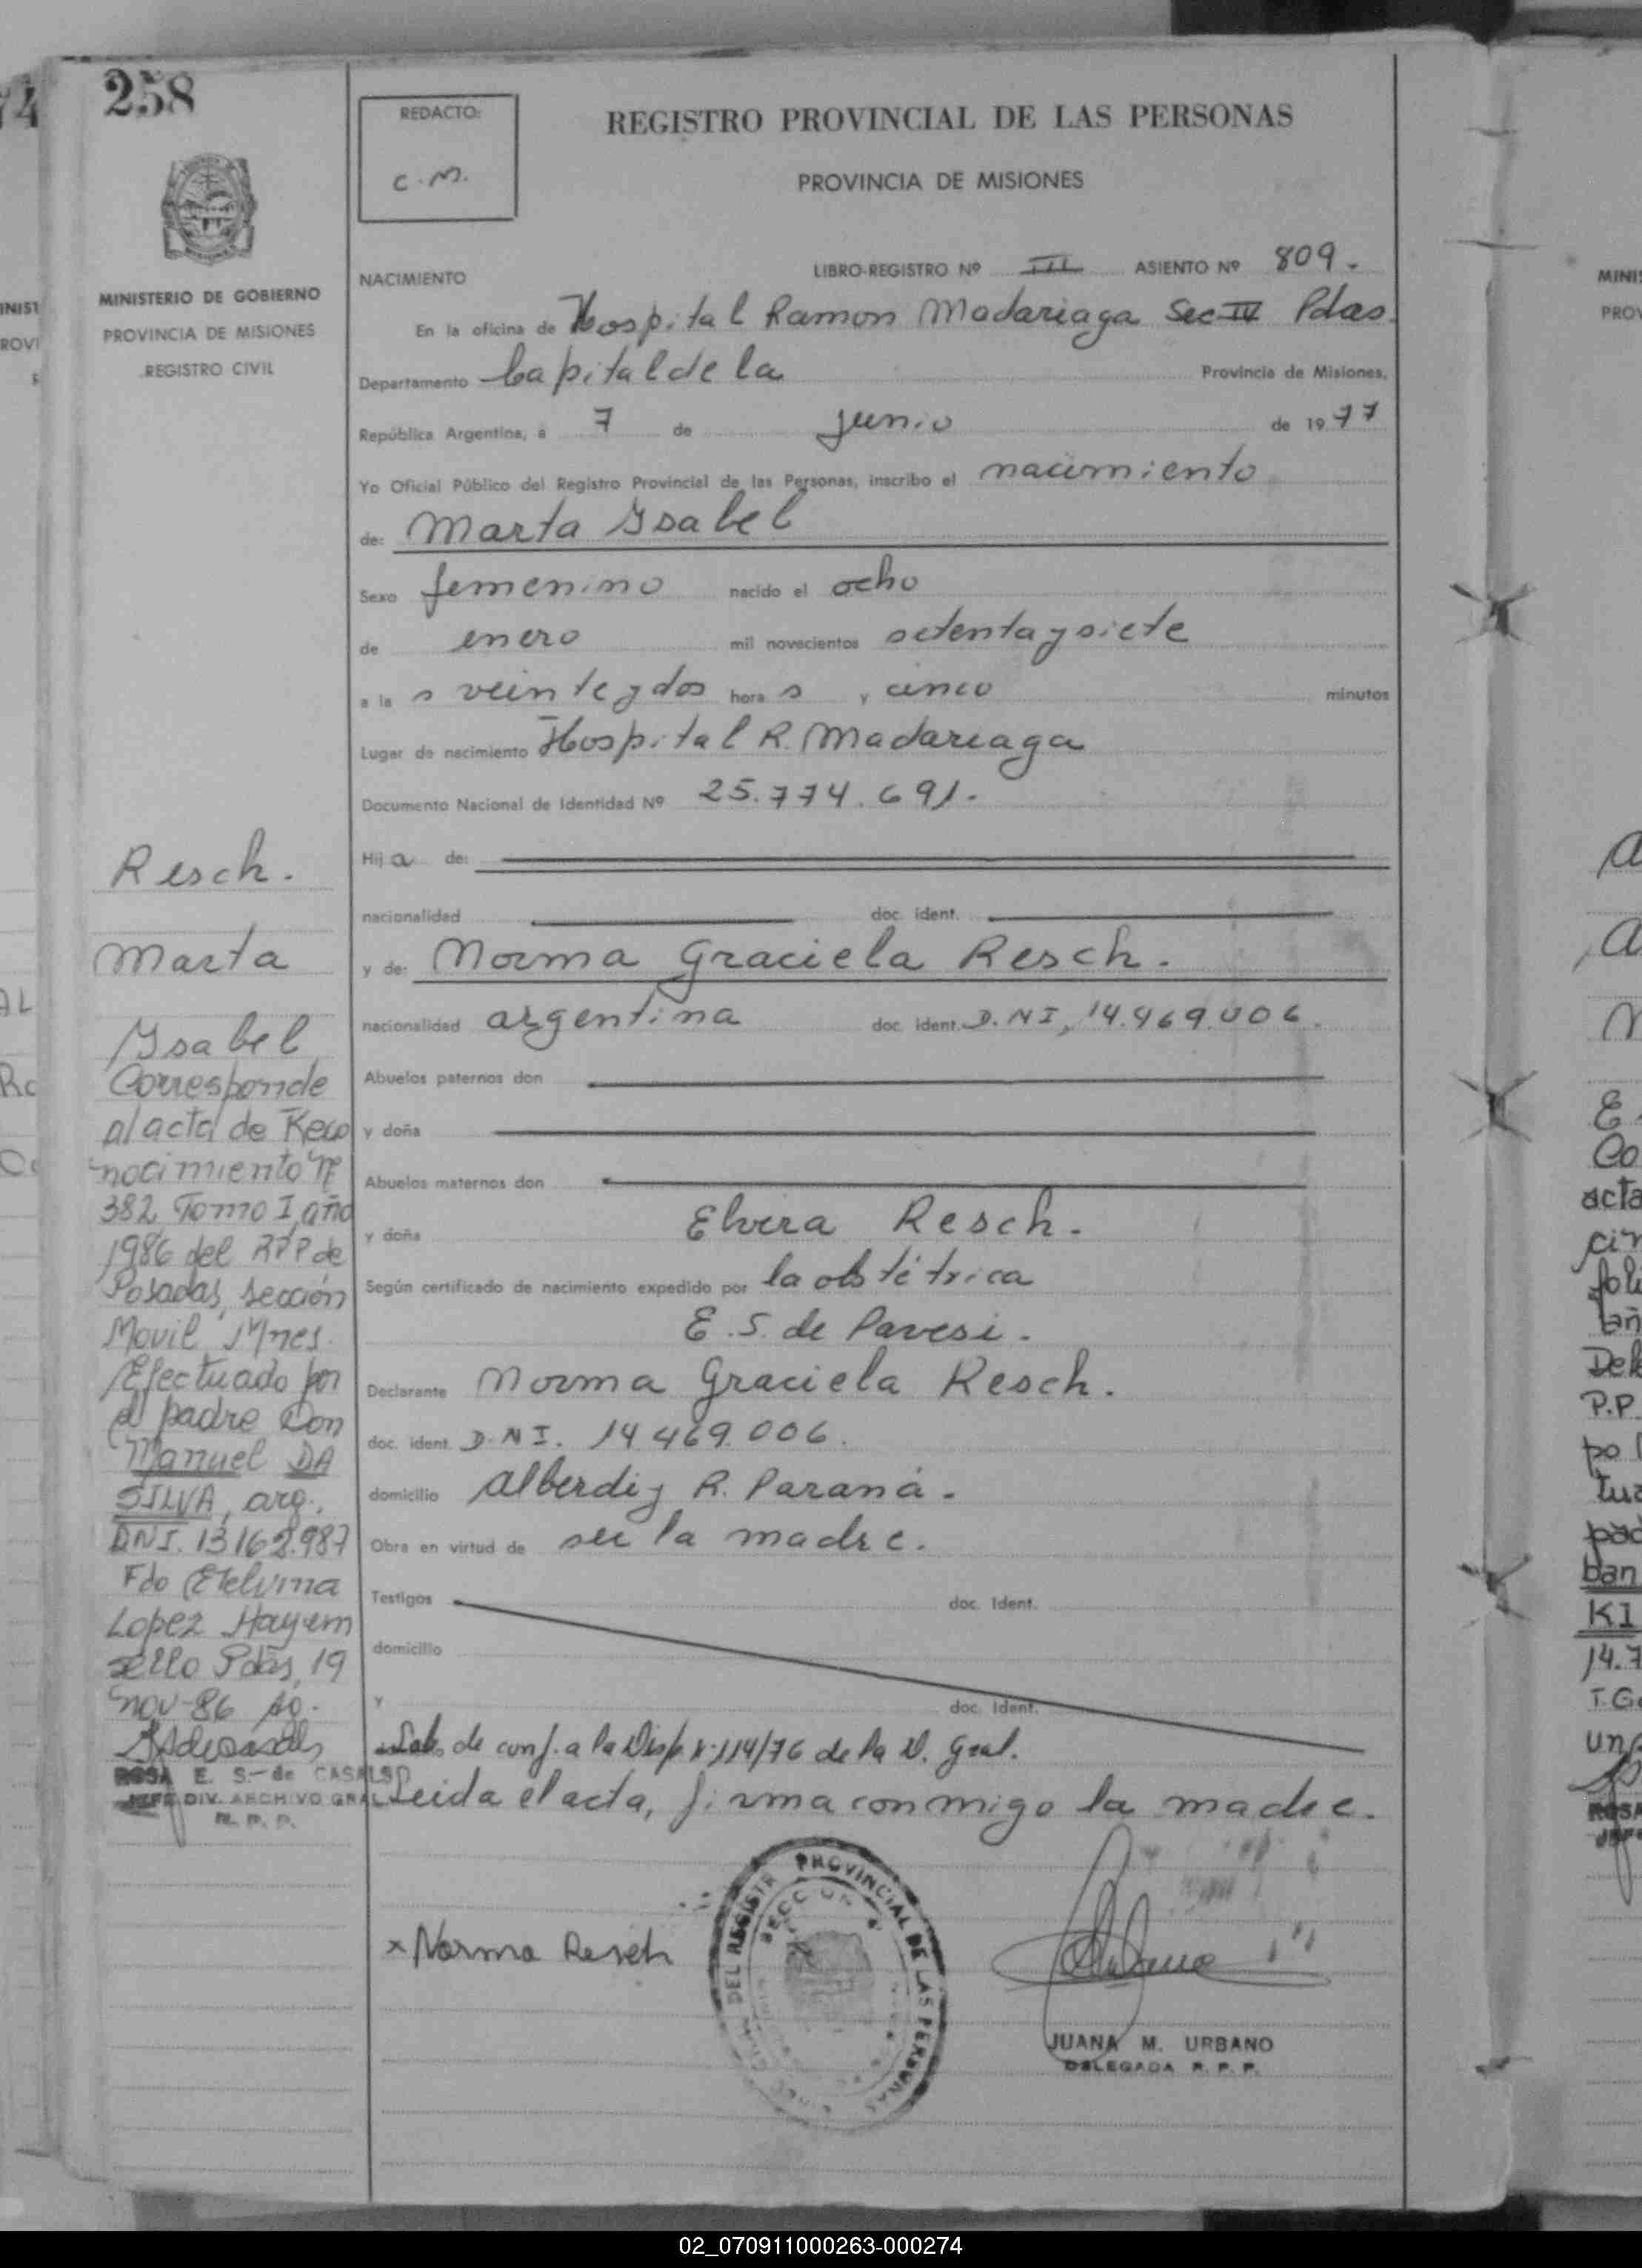 258
REDACTO:
C.M.
REGISTRO PROVINCIAL DE LAS PERSONAS
PROVINCIA DE MISIONES
MINISTERIO DE GOBIERNO
PROVINCIA DE MISIONES
REGISTRO CIVIL
NACIMIENTO
LIBRO-REGISTRO Nº III ASIENTO Nº 809.
En la oficina de Hospital Ramon Madariaga Sec IV Pdas.
Departamento Capital de la Provincia de Misiones,
República Argentina, a 7 de junio de 1977
Yo Oficial Público del Registro Provincial de las Personas, inscribo el nacimiento
de: Marta Ysabel
Sexo femenino nacido el ocho
de enero mil novecientos setenta y siete
a la s veinte y dos hora s y cinco minutos
Lugar de nacimiento Hospital R. Madariaga
Documento Nacional de Identidad Nº 25.774.691.
Hij a de:
nacionalidad doc. ident.
y de: Norma Graciela Resch.
nacionalidad argentina doc. ident. D.N.I, 14.469.006.
Abuelos paternos don
y doña
Abuelos maternos don
y doña Elvira Resch.
Según certificado de nacimiento expedido por la obstétrica
E.S. de Pavesi.
Declarante Norma Graciela Resch.
doc. ident. D.N.I. 14 469.006.
domicilio Alberdi y R. Paraná.
Obra en virtud de ser la madre.
Testigos doc. Ident.
domicilio
y doc. Ident.
de conf. a la Disp. 114/76 de la D. Gral.
Leida el acta, firma conmigo la madre.
x Norma Resch
DEL REGISTR PROVINCIAL DE LAS PERSONAS
SECCION
JUANA M. URBANO
DELEGADA R. P. P.
Resch.
Marta
Ysabel
Corresponde
al acta de Reco
nocimiento Nº
382 Tomo I, año
1986 del RPP de
Posadas, sección
Movil, Mnes.
Efectuado por
el padre Don
Manuel DA
SILVA, arg.
DNI. 13.162.987
Fdo Etelvina
Lopez Hayem
sello Pdas, 19
nov-86
ROSA E. S. de CASALS
JEFE DIV. ARCHIVO GRAL
R. P. P.
02_070911000263-000274